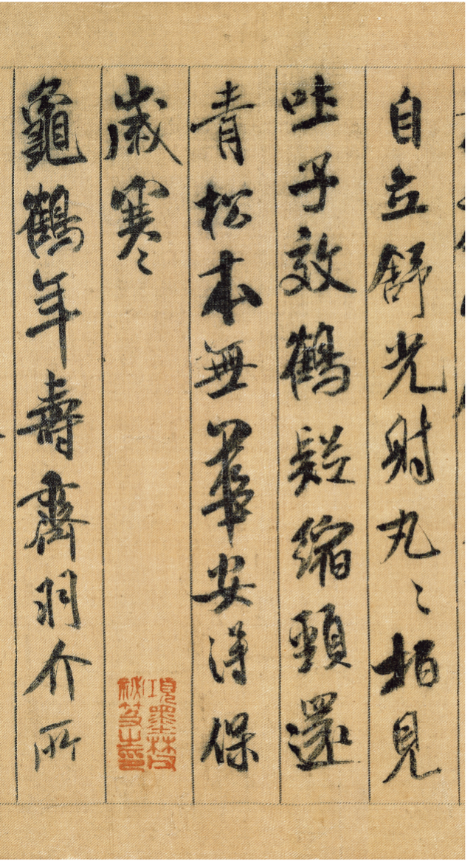 自立舒光射丸〻柏見
吐子效鶴疑縮頸還
青松本無華安得保
歲寒
龜鶴年壽齊羽介所
項墨林父
祕笈之印